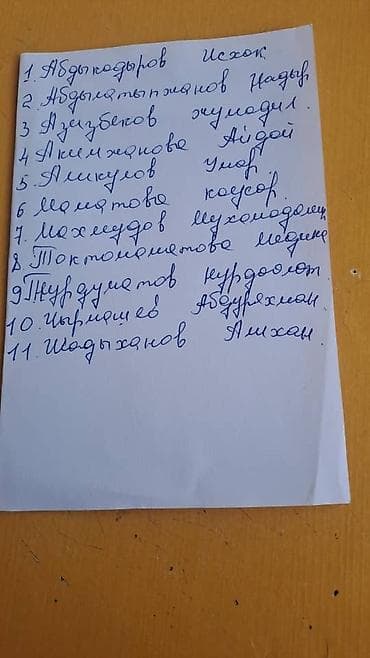 1. Абдыкадыров Исхак
2. Абдылатыпжанов Надыр
3 Азизбеков жумадил.
4 Акимжанова Айдай
5. Аликулов Умар.
6 Маматова каусар.
7. Махмудов Мухамадали
8. Токтомаматова Медина
9 Турдуматов нурдоолот.
10. Чырмашев Абдурахман.
11. Шадыханов Алихан.